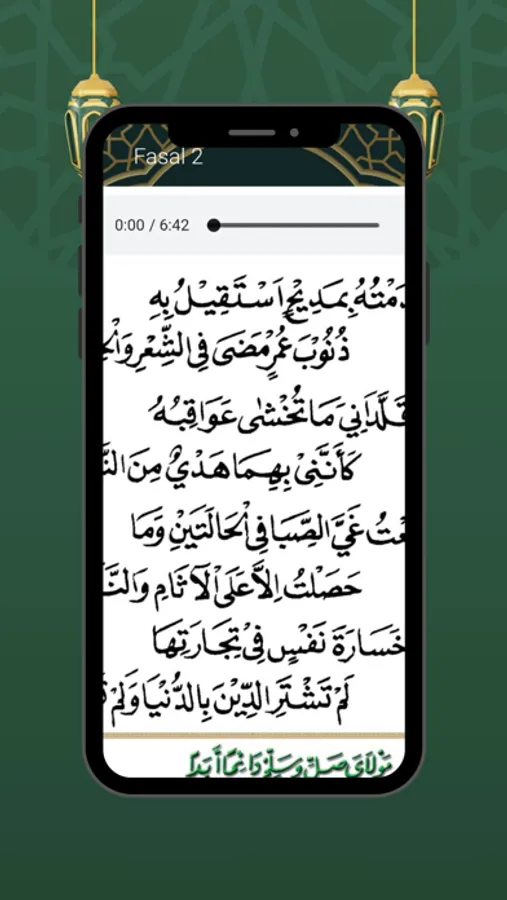 Fasal 2
0:00 / 6:42
بِمَدِيْحٍ اَسْتَقِيْلُ بِهِ
ذُنُوْبَ عُمْرٍ مَضَى فِى الشِّعْرِ
قَلَّدَانِيَ مَا تُخْشٰى عَوَاقِبُهُ
كَأَنَّنِىْ بِهِمَا هَدْيٌ مِنَ
غَيَّ الصِّبَا فِى الْحَالَتَيْنِ وَمَا
حَصَلْتُ اِلاَّ عَلَى الْآثَامِ
خَسَارَةَ نَفْسٍ فِىْ تِجَارَتِهَا
لَمْ تَشْتَرِ الدِّيْنَ بِالدُّنْيَا وَلَمْ
مَوْلَايَ صَلِّ وَسَلِّمْ دَائِمًا أَبَدًا